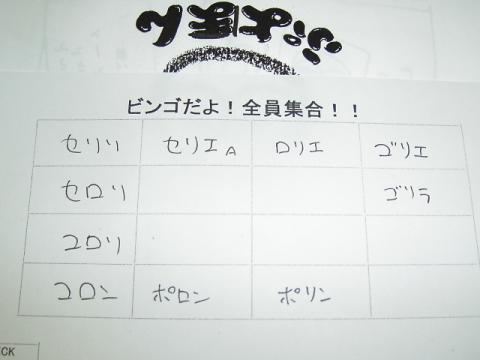 ぷよまん
ビンゴだよ!全員集合!!
セリリ セリエA ロリエ ゴリエ
セロリ ゴリラ
コロリ
コロン ポロン ポリン
CK